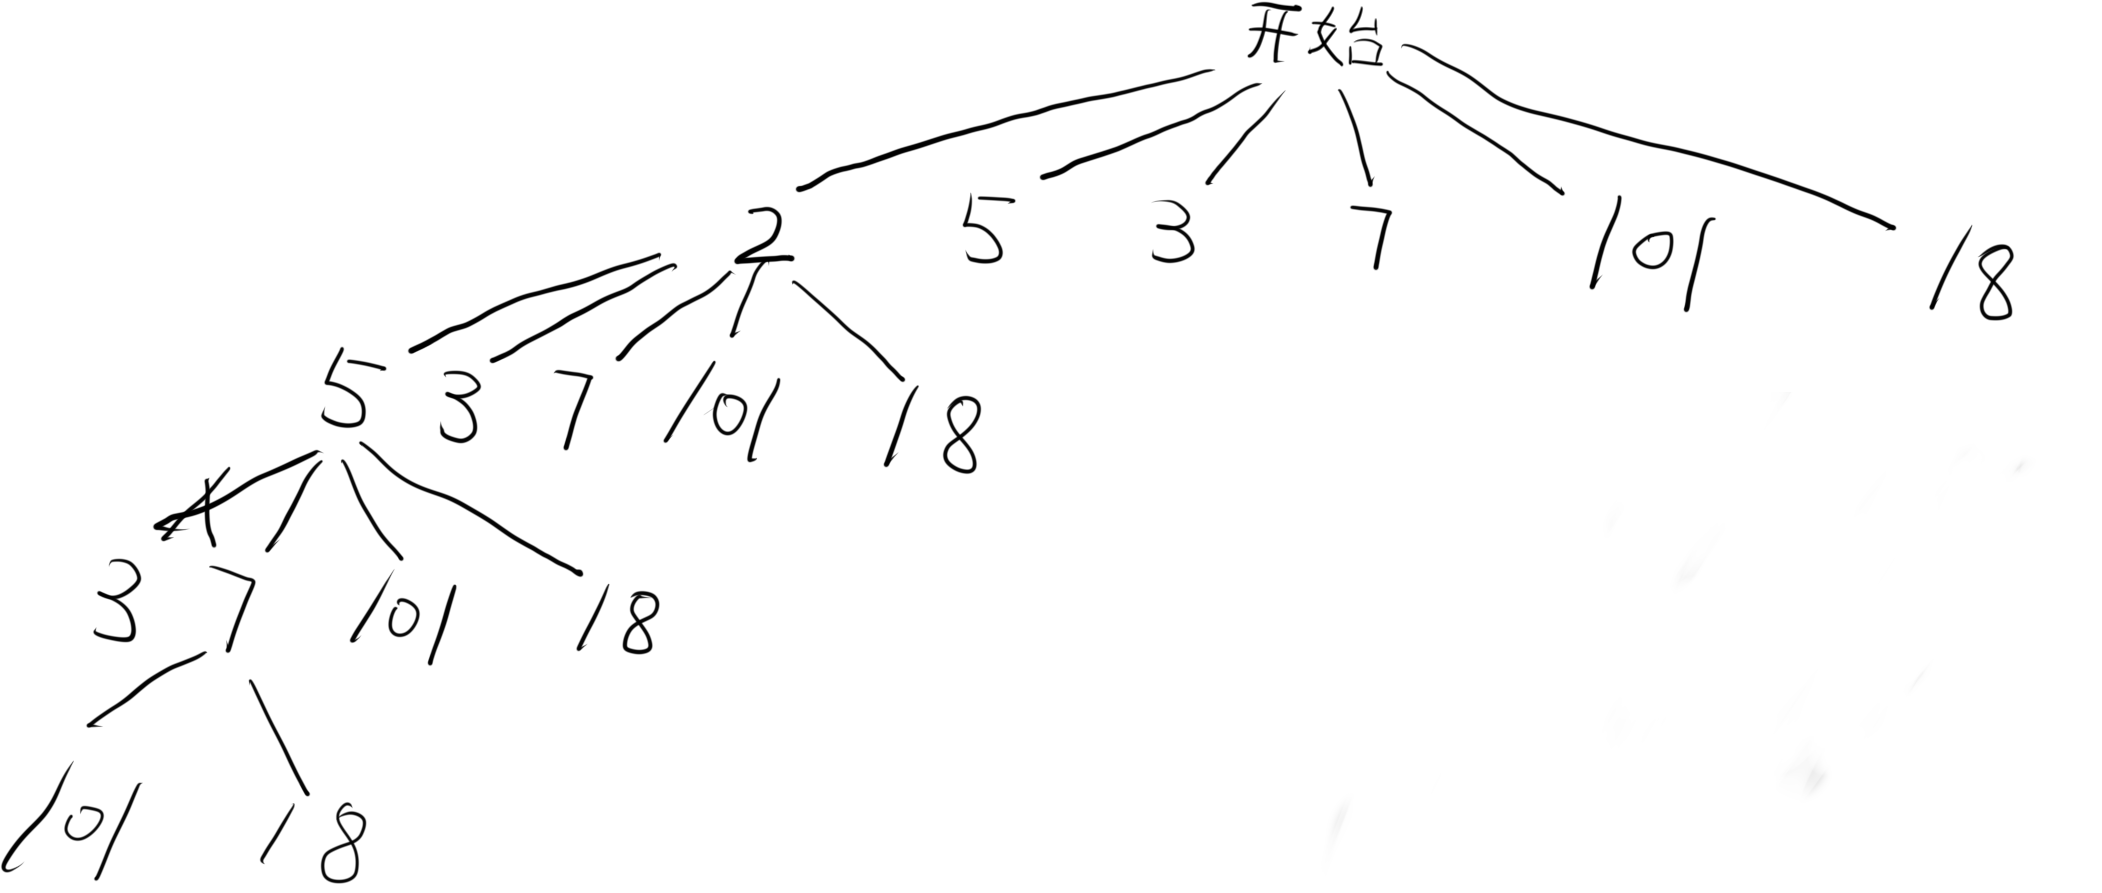 开始
2 5 3 7 101 18
5 3 7 101 18
3 7 101 18
101 18